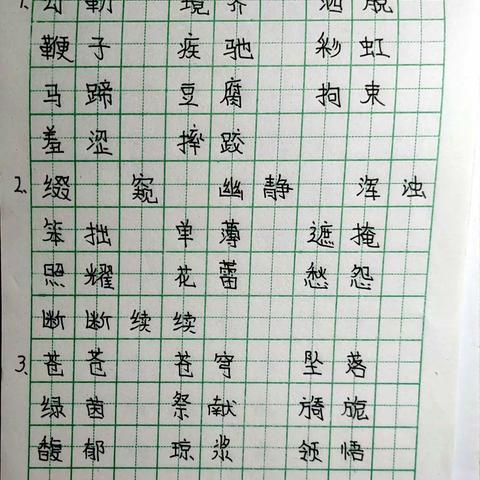 1. 勾勒 境界 洒脱
鞭子 疾驰 彩虹
马蹄 豆腐 拘束
羞涩 摔跤
2. 缀 窥 幽静 浑浊
笨拙 单薄 遮掩
照耀 花蕾 愁怨
断断续续
3. 苍苍 苍穹 坠落
绿茵 祭献 旖旎
馥郁 琼浆 领悟